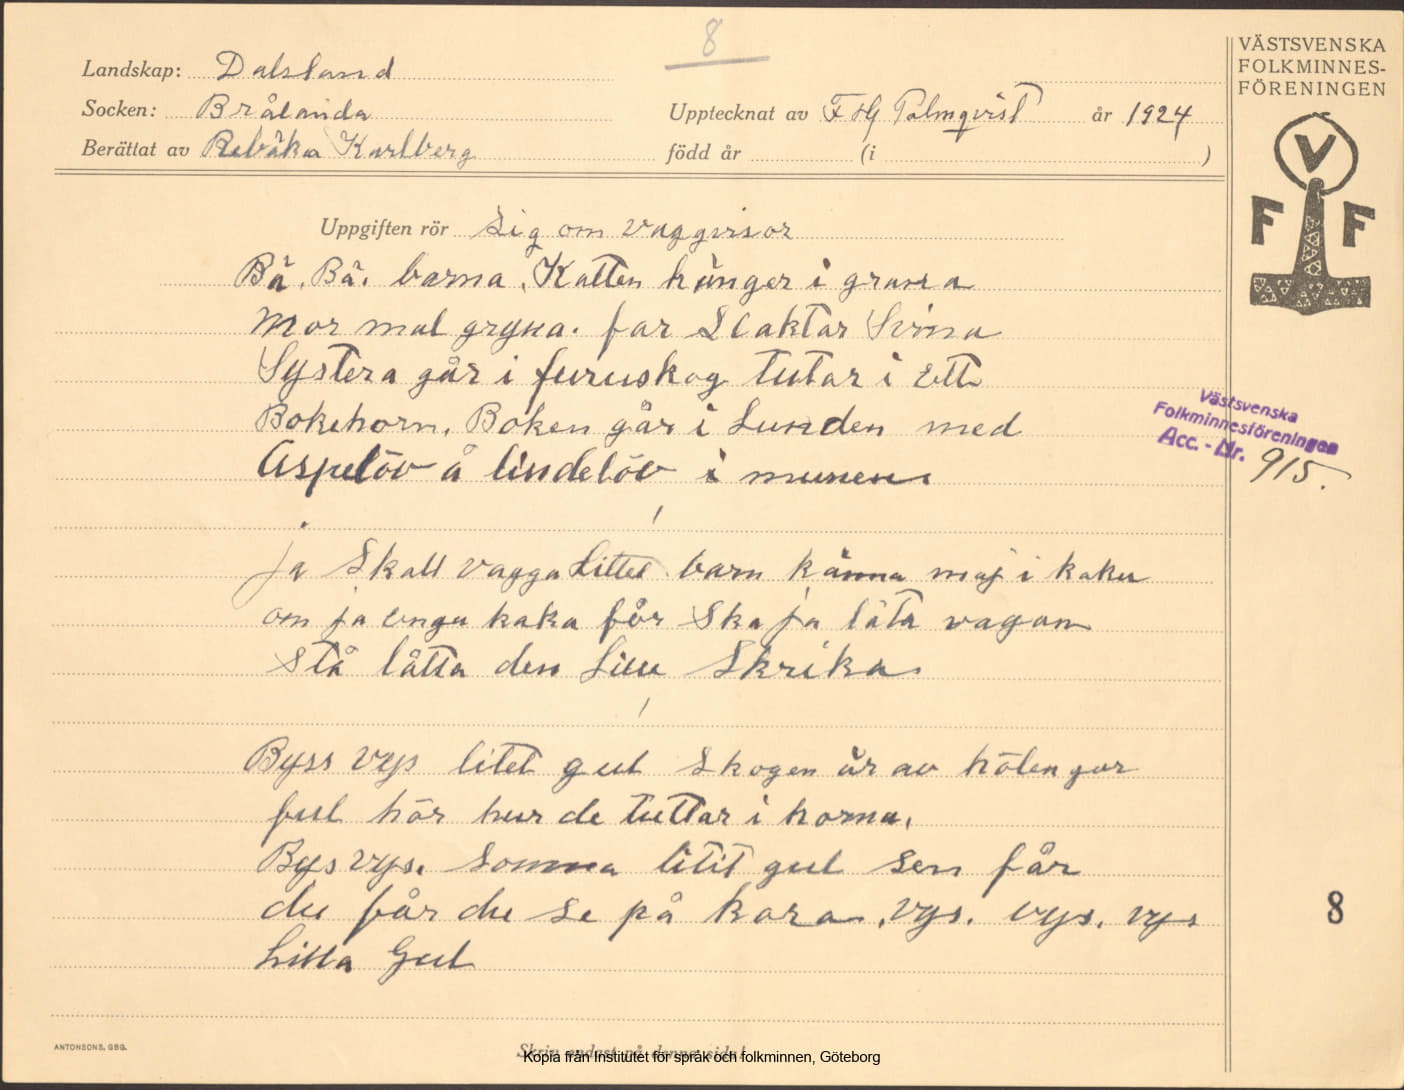 8
Landskap: Dalsland
Socken: Brålanda
Upptecknat av F Hj Palmqvist år 1924
Berättat av Rebäka Karlberg
född år (i )
VÄSTSVENSKA
FOLKMINNES-
FÖRENINGEN
V
F F
Uppgiften rör Sig om Vaggvisor
Bä. Bä. barna, Katten hänger i grana
Mor mal gryna. far Slaktar Svina
Systera går i furuskog tutar i ett
Bokehorn, Boken går i Lunden med
Aspelöv å lindelöv i munen.
Västsvenska
Folkminnesföreningen
Acc. - Nr. 915.
ja Skall vagga Littet barn känna maj i kaku
om ja enga kaka får Ska ja låta vagan
Stå låtta den Lille Skrika.
Byss vys litet gul Skogen är av
ful hör hur de tuttar i horna.
Bys vys. Somna litit gul sen får
du får du se på kara, vys. vys. vys
Litta Gul
8
ANTONSONS, GBG.
Skriv endast på denna sida!
Kopia från Institutet för språk och folkminnen, Göteborg